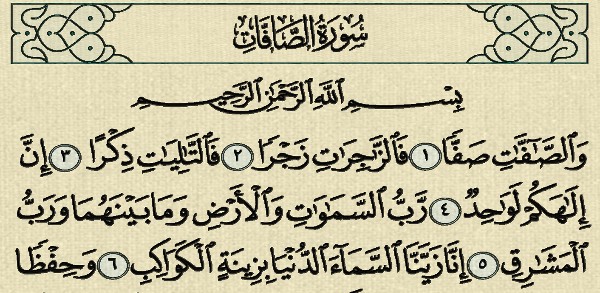 سُورَةُ الصَّافَّاتِ
بِسْمِ ٱللَّهِ ٱلرَّحْمَٰنِ ٱلرَّحِيمِ
وَٱلصَّٰٓفَّٰتِ صَفًّا ١ فَٱلزَّٰجِرَٰتِ زَجْرًا ٢ فَٱلتَّٰلِيَٰتِ ذِكْرًا ٣ إِنَّ
إِلَٰهَكُمْ لَوَٰحِدٌ ٤ رَّبُّ ٱلسَّمَٰوَٰتِ وَٱلْأَرْضِ وَمَا بَيْنَهُمَا وَرَبُّ
ٱلْمَشَٰرِقِ ٥ إِنَّا زَيَّنَّا ٱلسَّمَآءَ ٱلدُّنْيَا بِزِينَةٍ ٱلْكَوَاكِبِ ٦ وَحِفْظًا